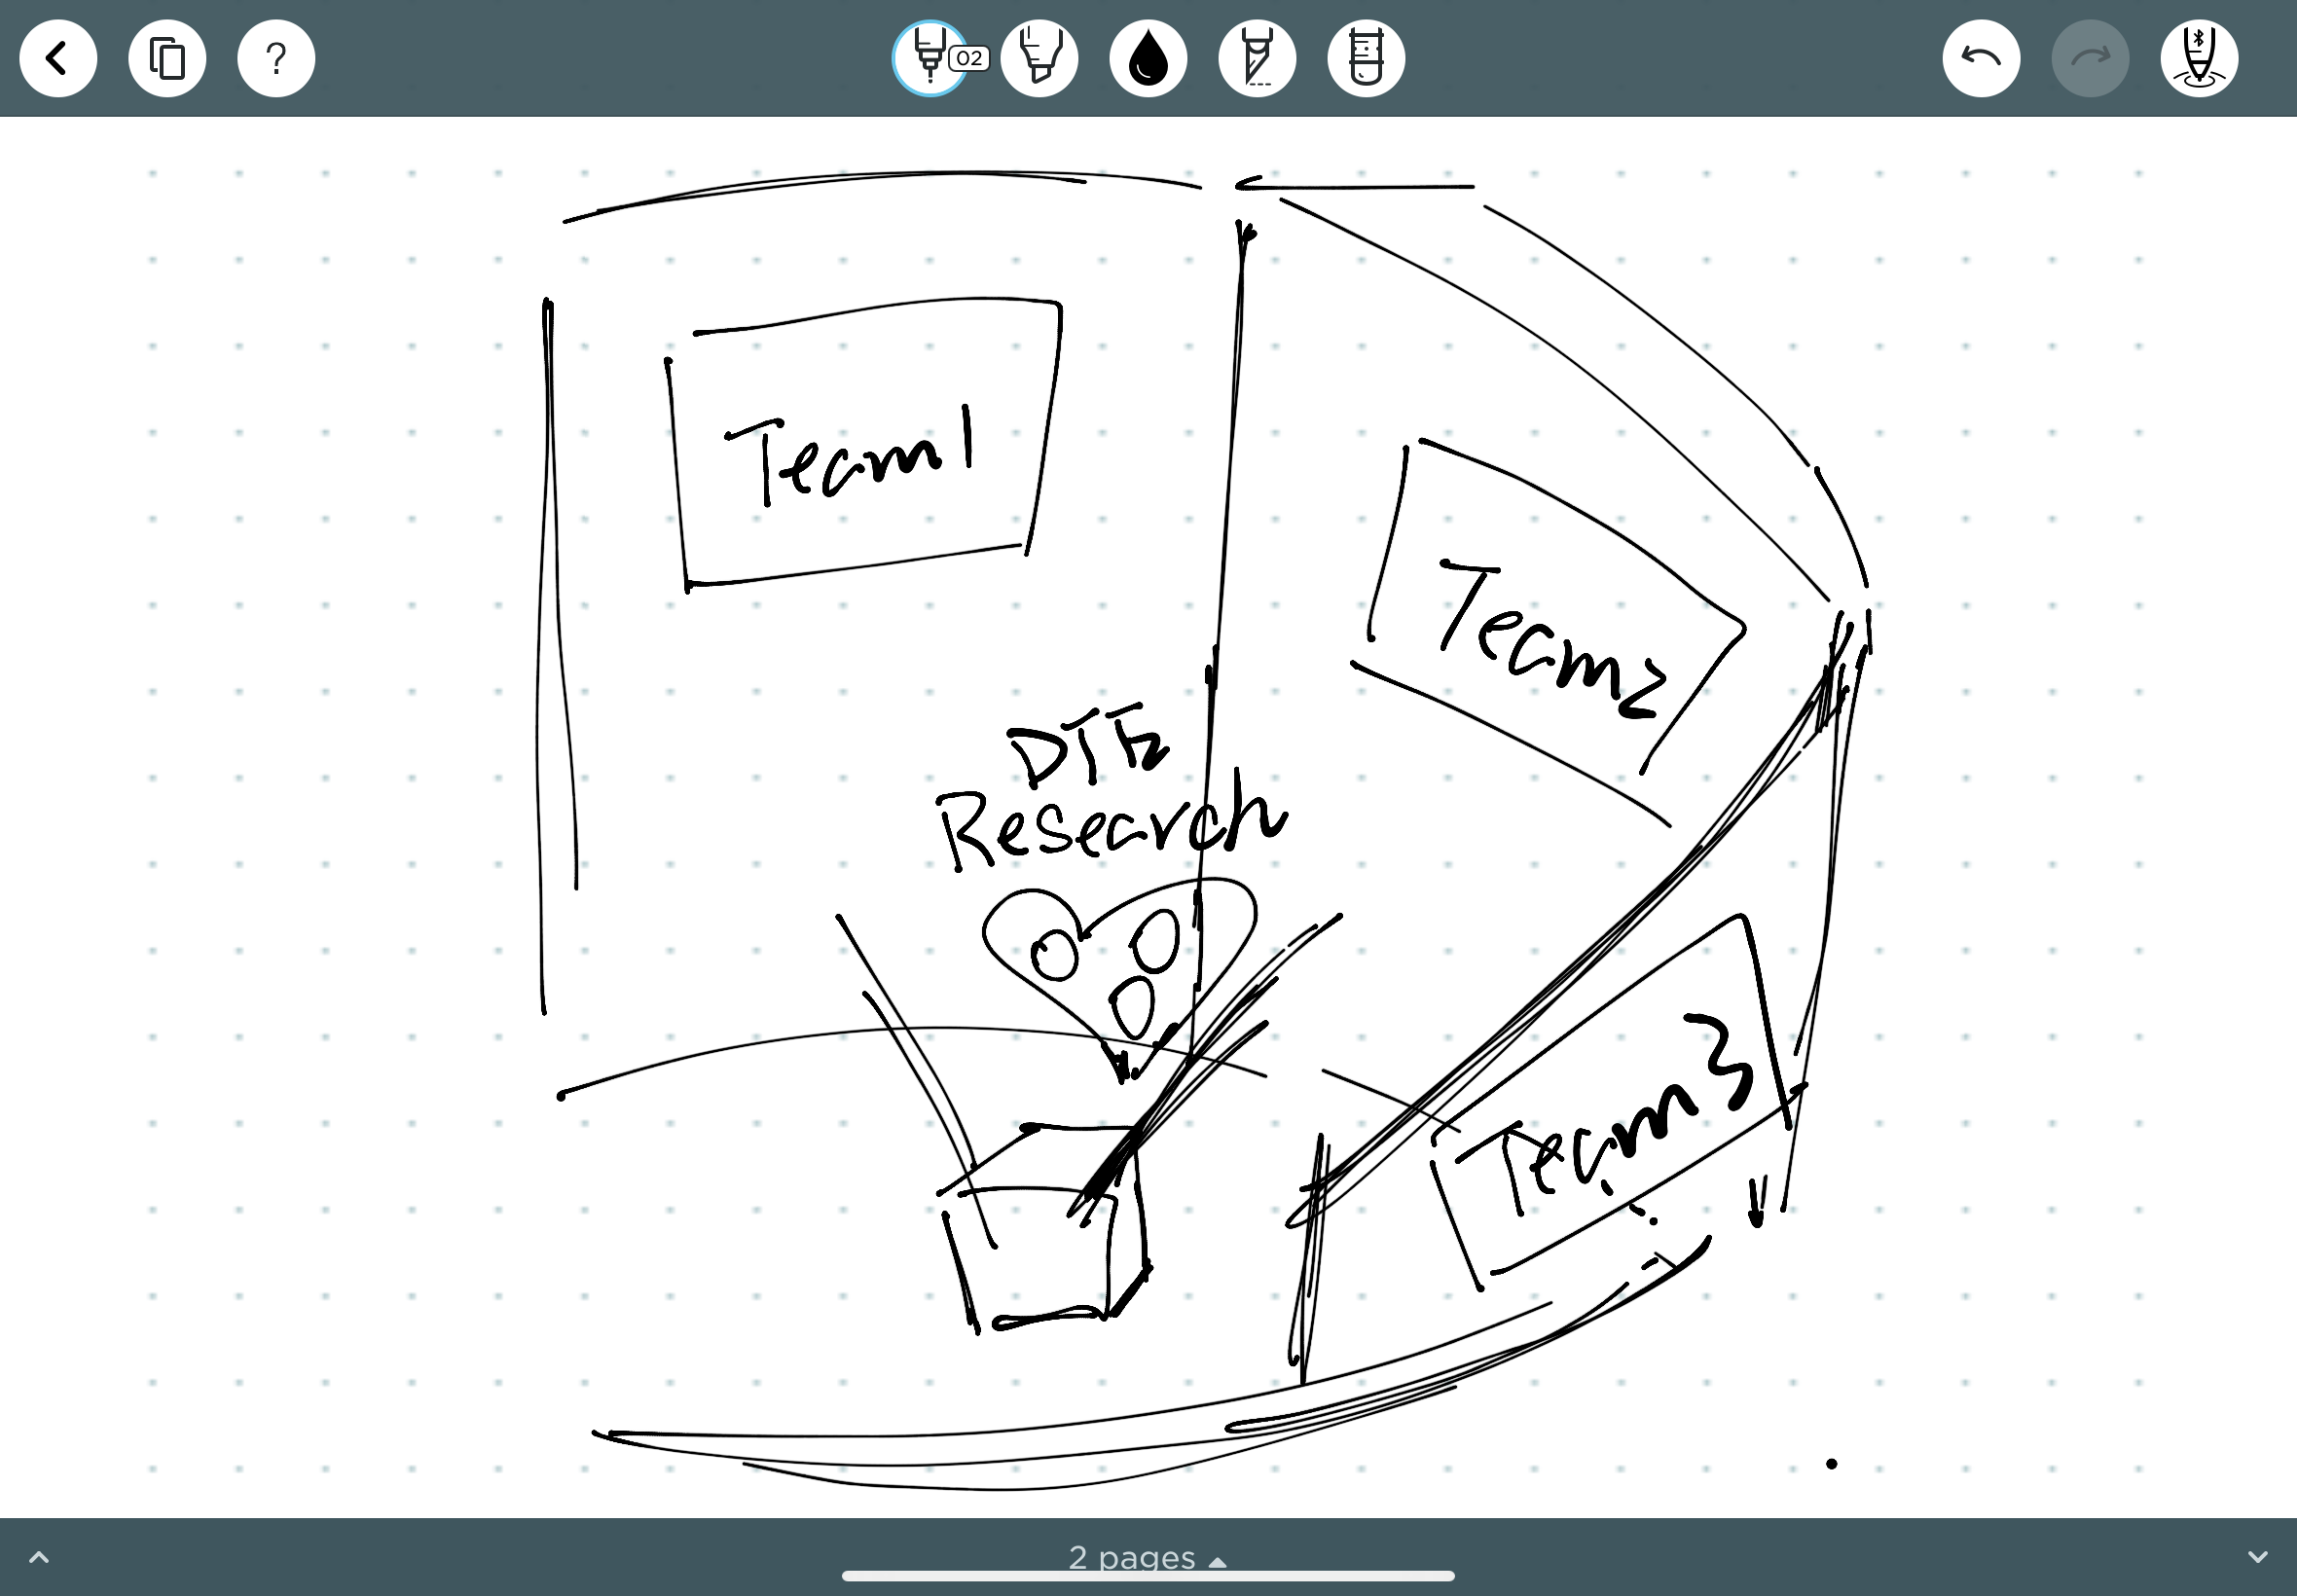 ?
02
Team 1
Team 2
Research
Team 3
2 pages